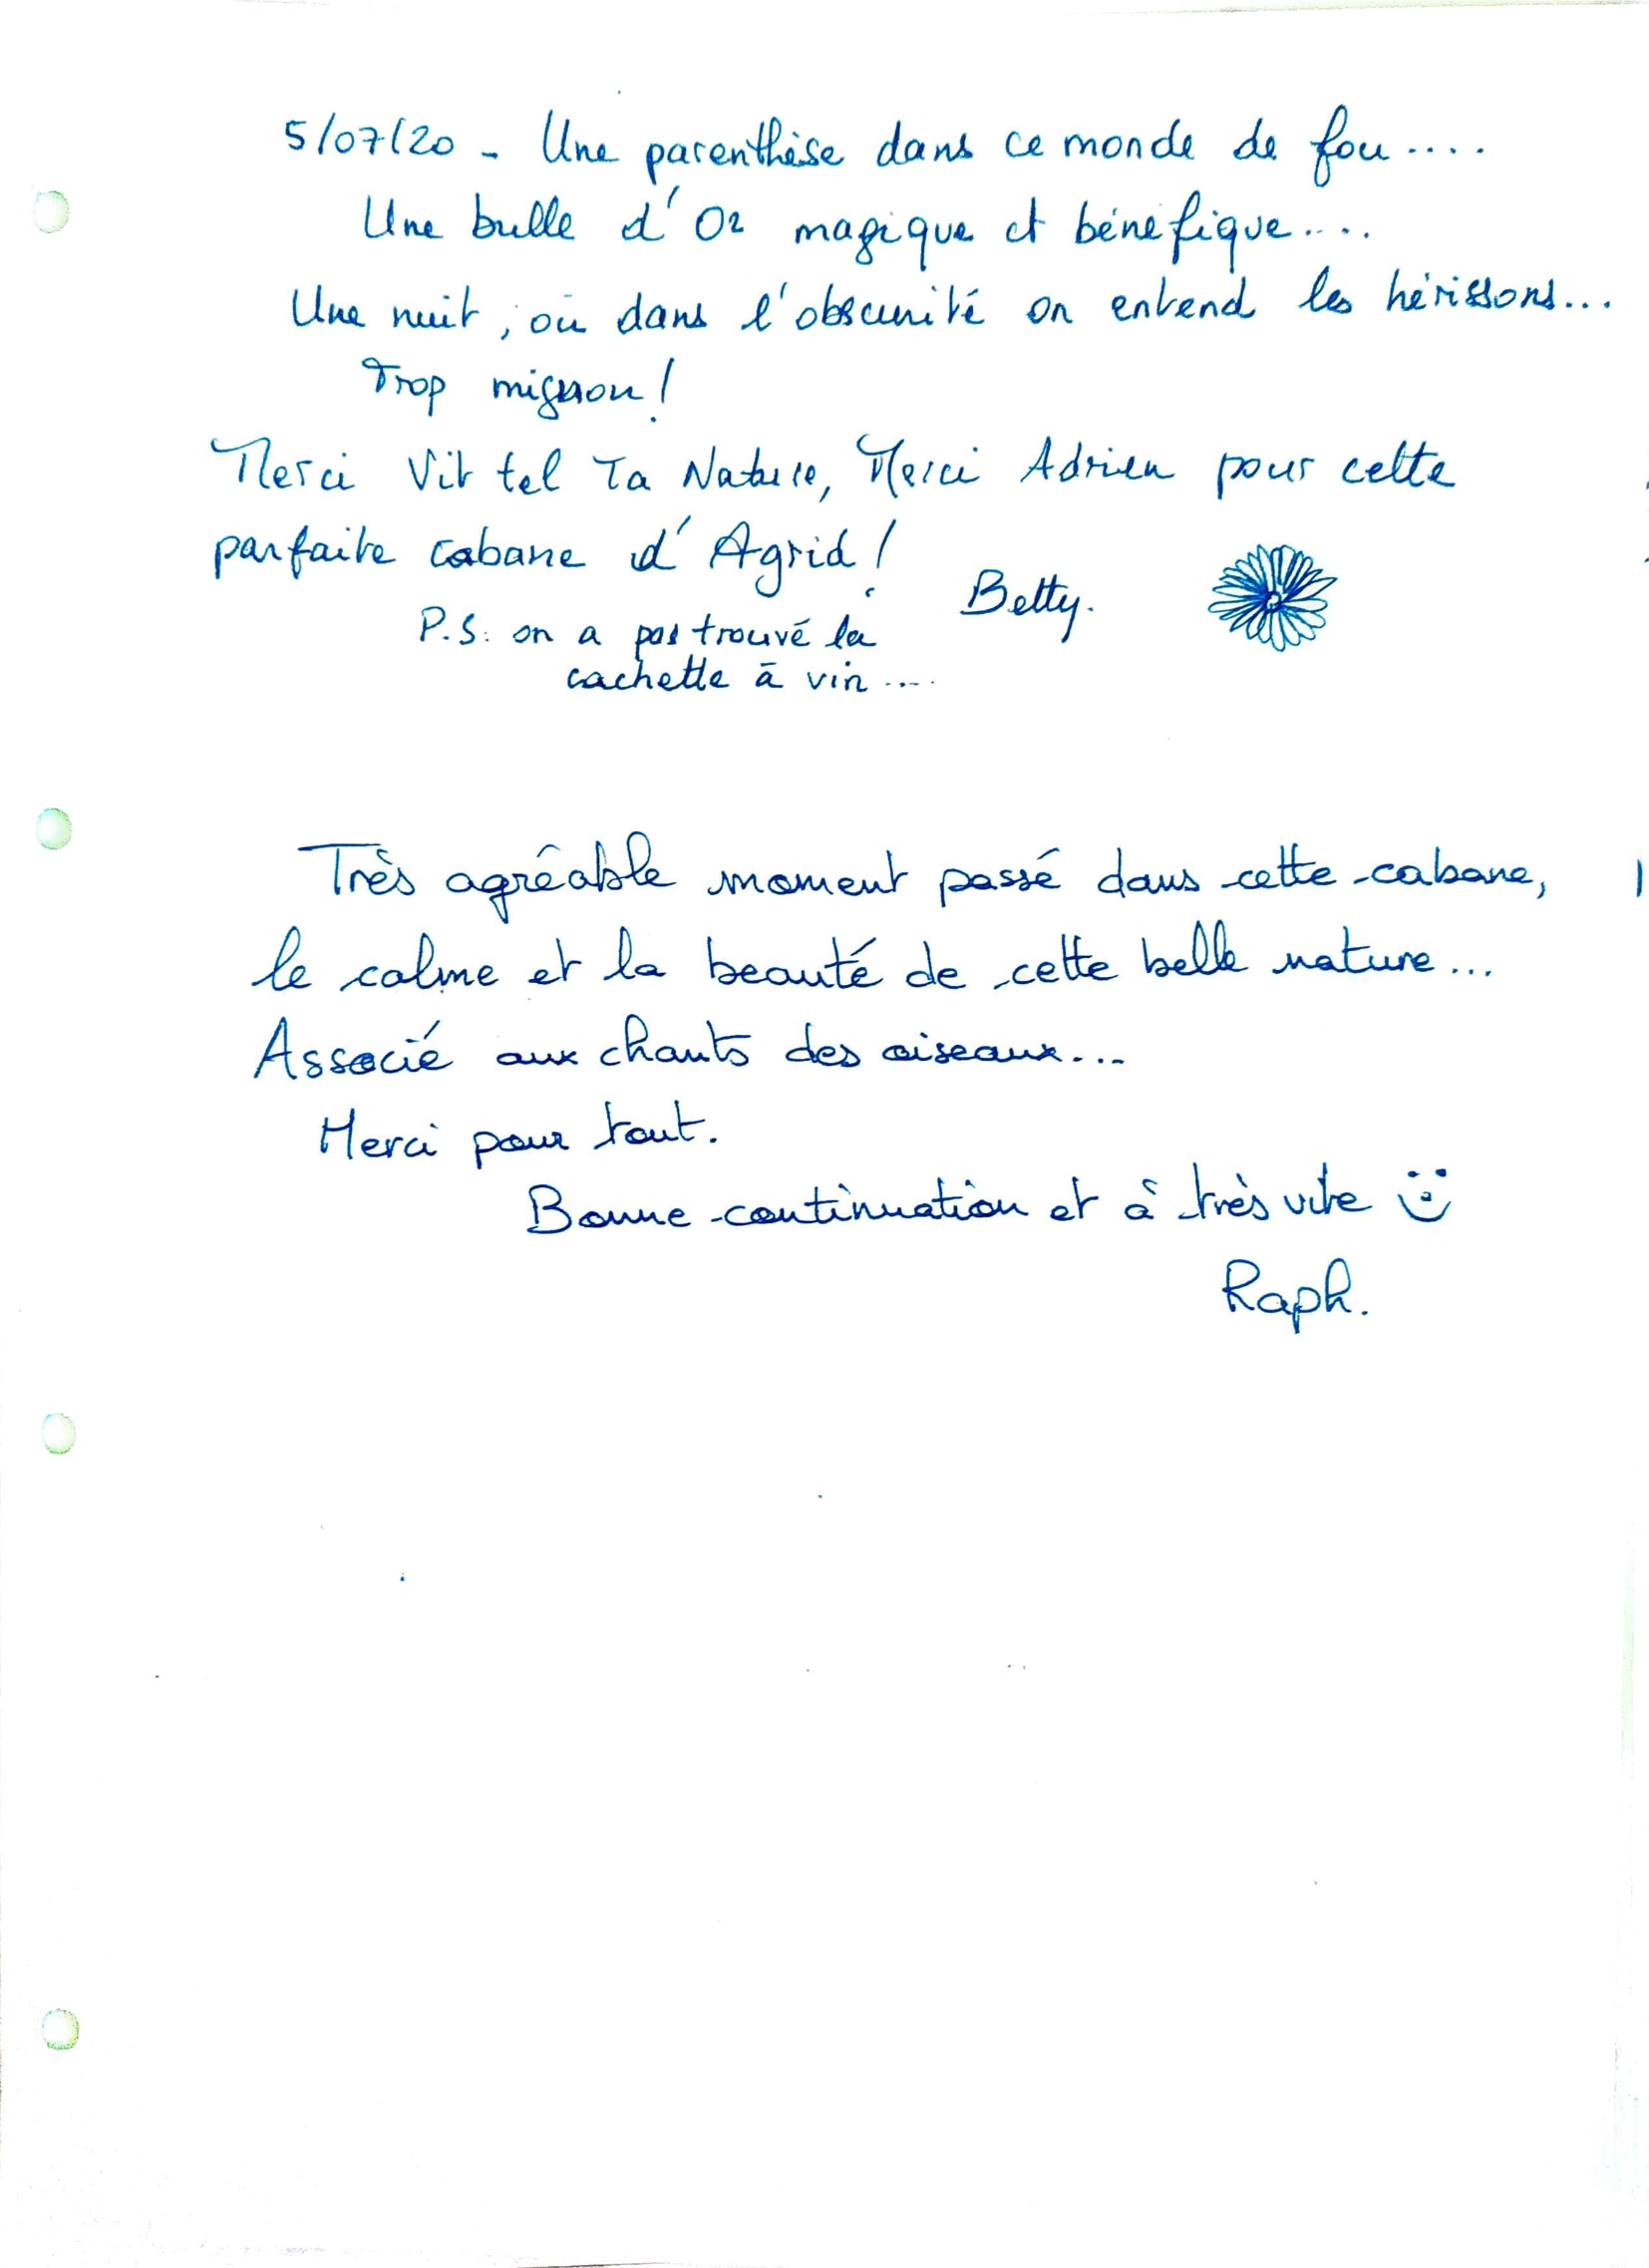 5/07/20 - Une parenthèse dans ce monde de fou....
Une bulle d'O2 magique et bénéfique....
Une nuit, où dans l'obscurité on entend les hérissons...
Trop mignon!
Merci Vit tel Ta Nature, Merci Adrien pour cette
parfaite cabane d'Agrid!
Betty.
P.S: on a pas trouvé la
cachette à vin ....
Très agréable moment passé dans cette cabane,
le calme et la beauté de cette belle nature...
Associé aux chants des oiseaux...
Merci pour tout.
Bonne continuation et à très vite
Raph.